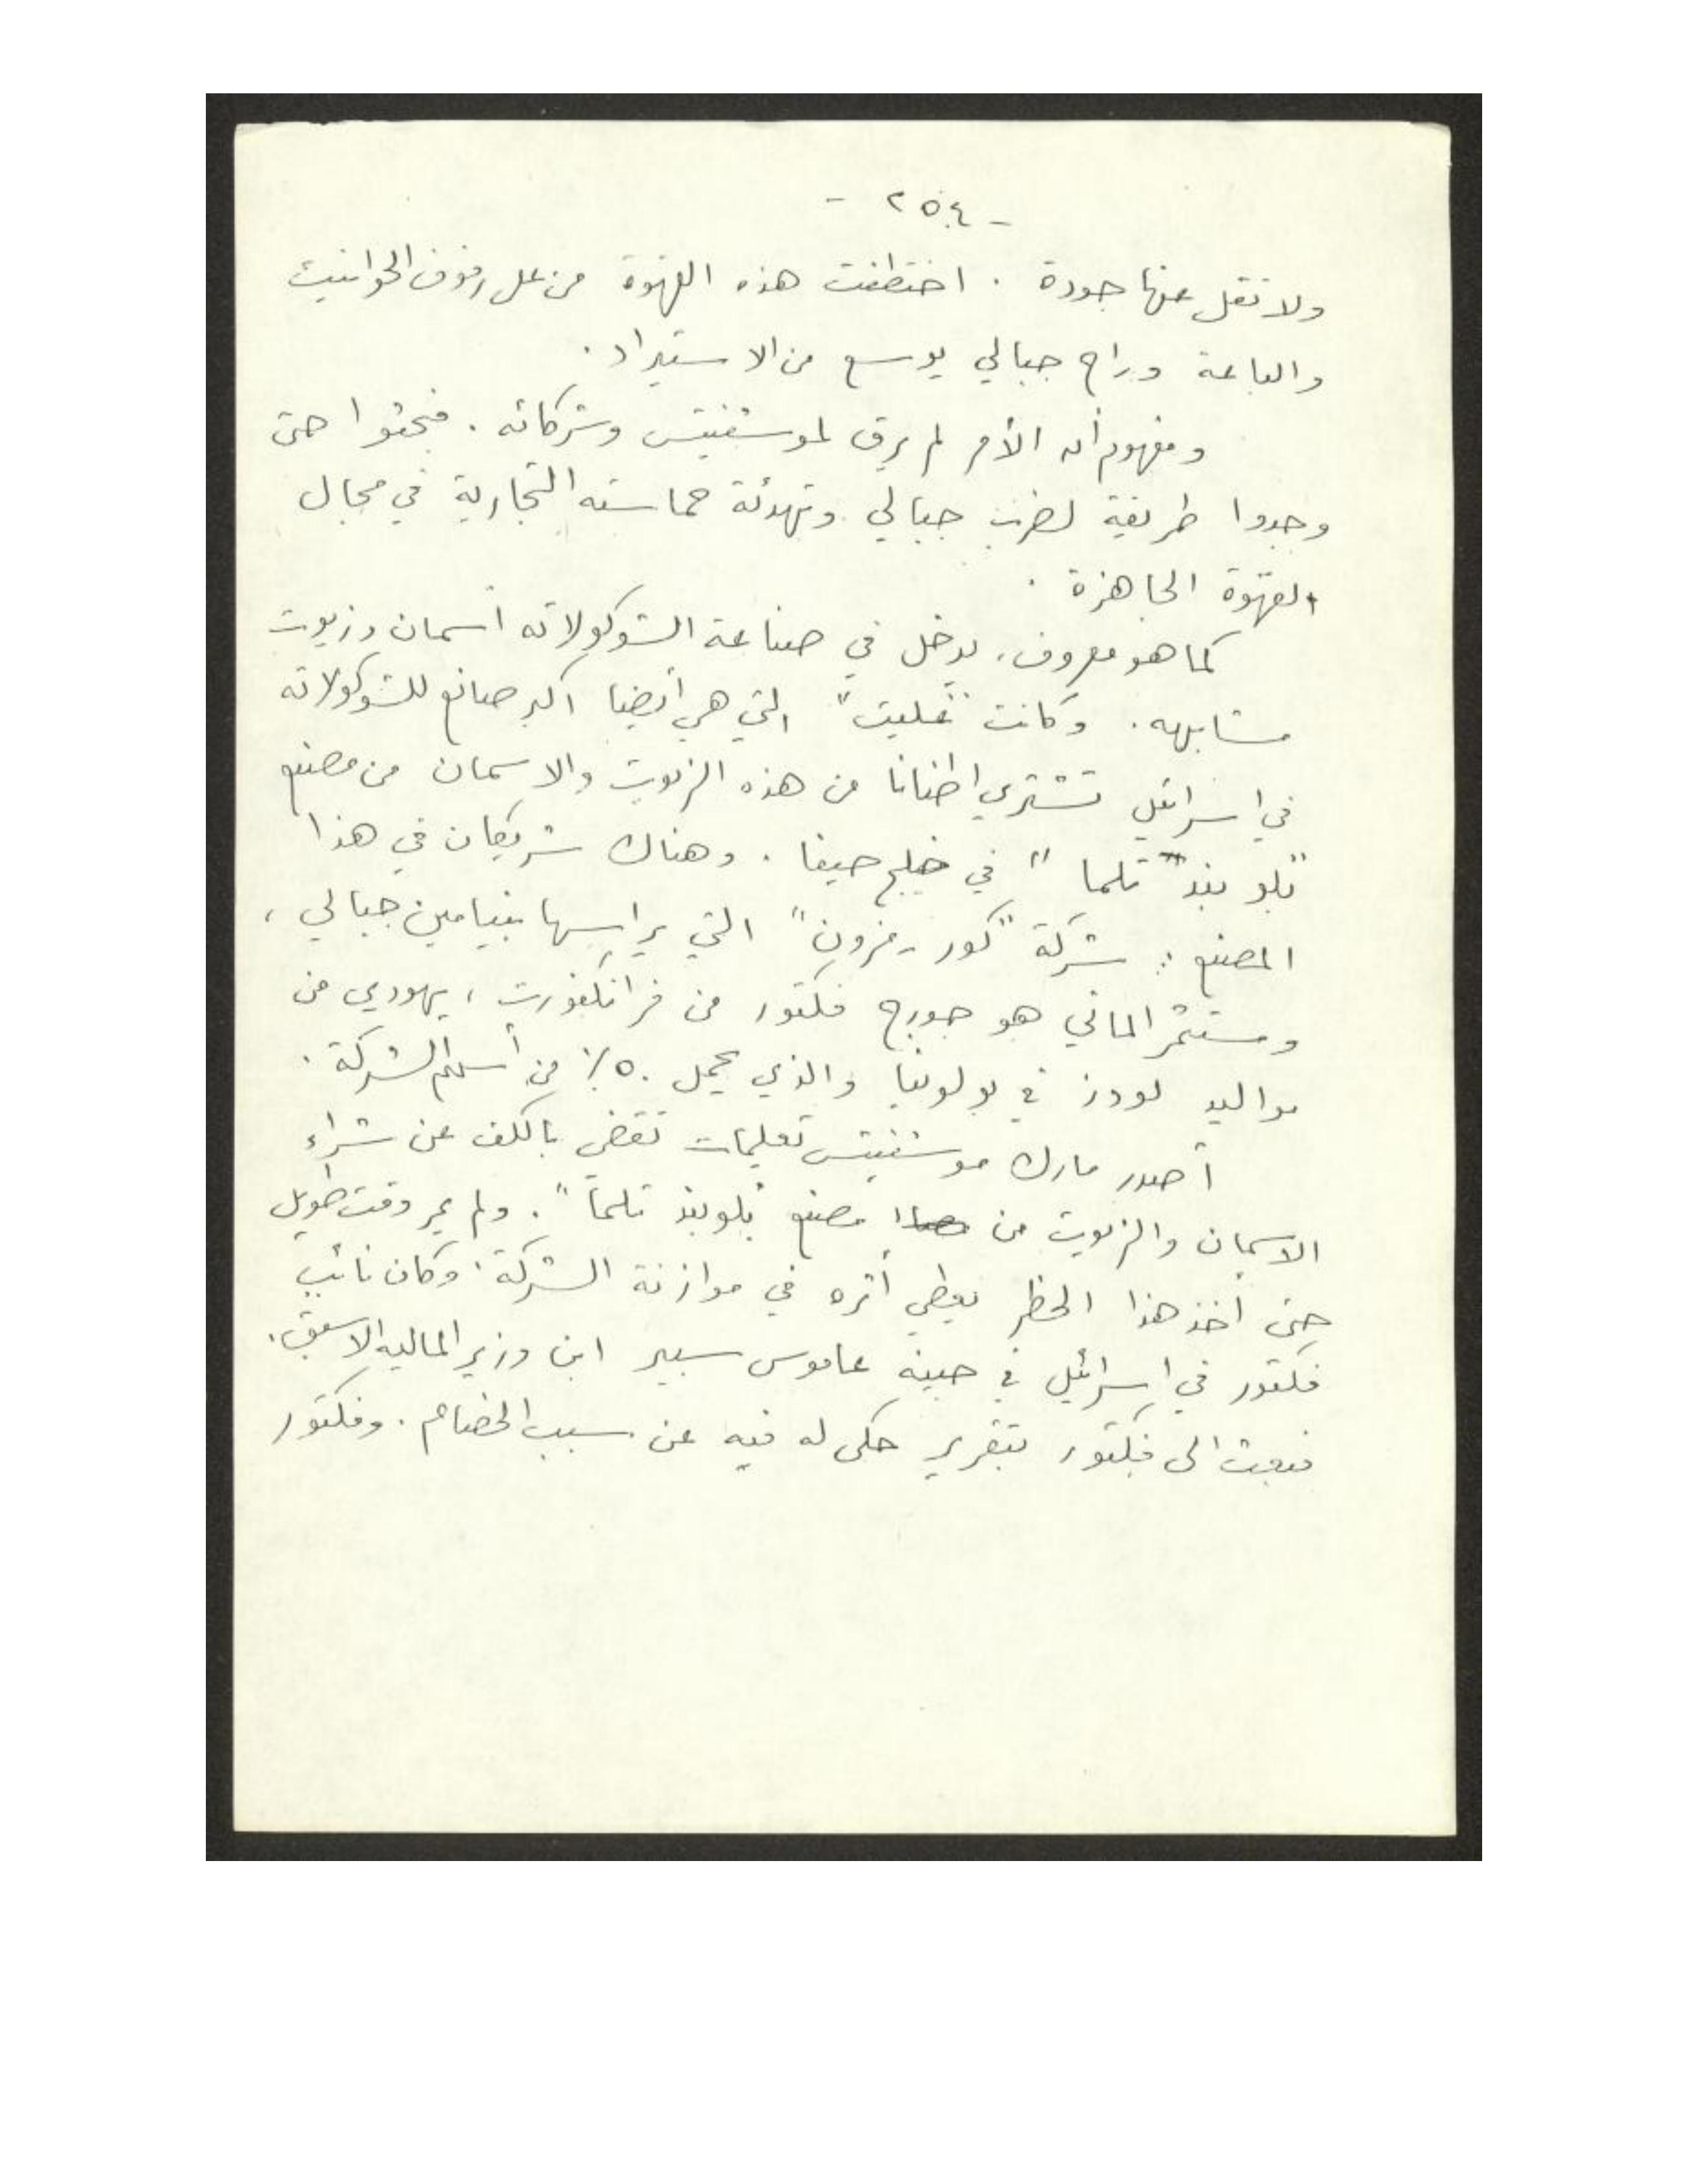 - ٢٥٤ -
ولا تقل عنها جودة . اختطفت هذه القهوة من على رفوف الحوانيت
والباعة وراح جبالي يوسع من الاستيراد .
ومفهوم أن الأمر لم يرق لموسفيتس وشركائه . فبحثوا حتى
وجدوا طريقة لضرب جبالي وتهدئة حماسته التجارية في مجال
القهوة الجاهزة .
كما هو معروف، يدخل في صناعة الشوكولاته أسمان وزيوت
مشابهه . وكانت "عليت" التي هي أيضا اكبر صانع للشوكولاته
في اسرائيل تشتري اطنانا من هذه الزيوت والاسمان من مصنع
"بلوبند تلما" في خليج حيفا . وهناك شريكان في هذا
المصنع : شركة "كور - مزون" التي يراسها بنيامين جبالي ،
ومستثمر الماني هو جورج فكتور من فرانكفورت ، يهودي من
مواليد لودز في بولونيا والذي يحمل ٥٠٪ من أسهم الشركة .
أصدر مارك موشفيتس تعليمات تقضي بالكف عن شراء
الاسمان والزيوت من مصنع "بلوبند تلما" . ولم يمر وقت طويل
حتى أخذ هذا الحظر يعطي أثره في موازنة الشركة . وكان نائب
فكتور في اسرائيل في حينه عاموس سبير ابن وزير الماليه الاسبق .
فبعث الى فكتور بتقرير حكى له فيه عن سبب الخصام . وفكتور